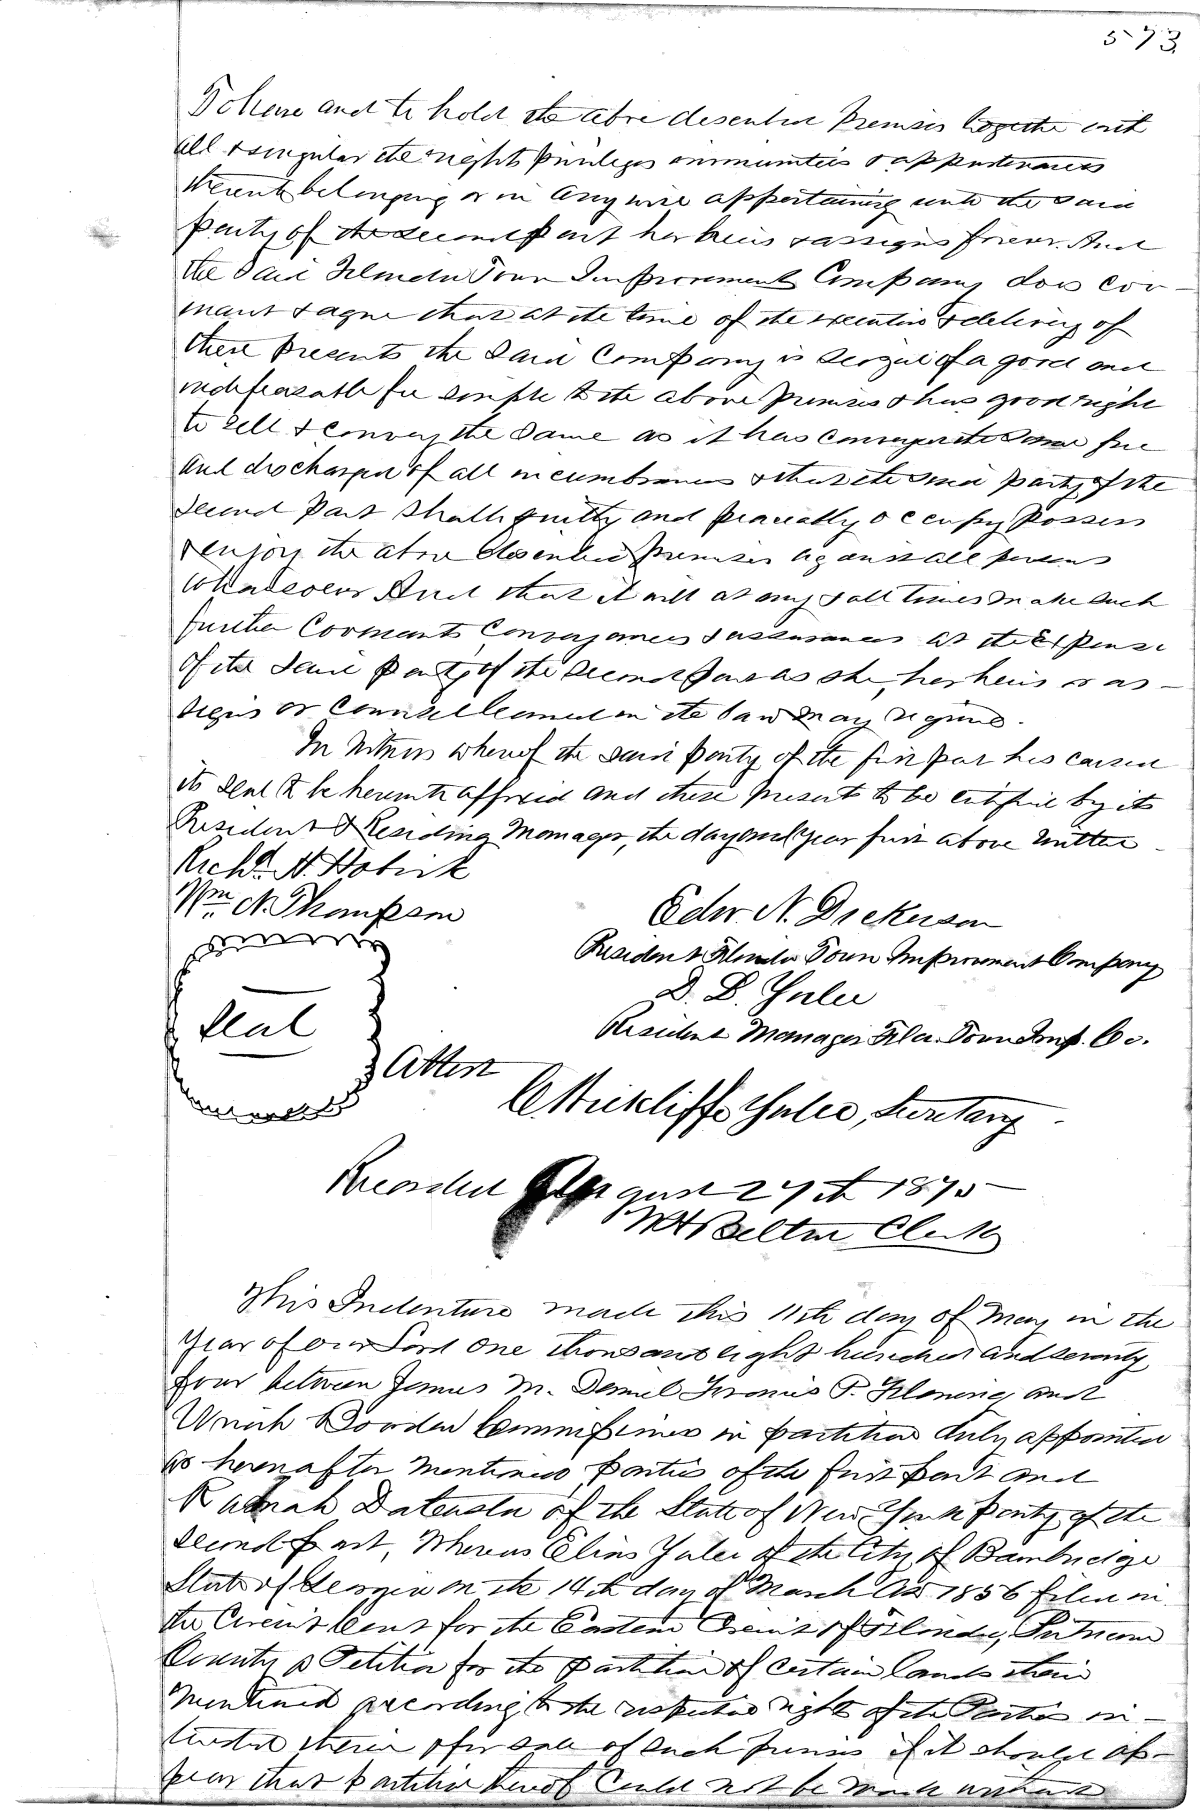 573
To have and to hold the above described Premises together with
all & singular the rights privileges immunities & appurtenances
thereunto belonging or in any wise appertaining unto the said
party of the second part her heirs & assigns forever. And
the said Florida Town Improvement Company does cov-
enant & agree that at the time of the execution & delivery of
these presents the said Company is seized of a good and
indefeasable fee simple to the above premises & has good right
to sell & convey the same as it has conveyed the same free
and discharged of all incumbrances & that the said party of the
second part shall quietly and peaceably occupy possess
& enjoy the above described premises against all persons
whatsoever And that it will at any & all times make such
further Covenants, Conveyances & assurances at the Expense
of the said party of the second part as she, her heirs or as-
signs or Counsel learned in the law may require.
In Witness whereof the said party of the first part has caused
its seal to be hereunto affixed and these presents to be certified by its
President & Residing Manager, the day and year first above written
Richd. H.
Wm. N. Thompson
Edw. N. Dickerson
President Florida Town Improvement Company
D. L. Yulee
Resident Manager Fla. Town Imp. Co.
Seal
Attest
C Wickliffe Yulee, Secretary
Recorded August 27th 1875
Clerk
This Indenture made this 11th day of May in the
Year of our Lord One thousand eight hundred and seventy
four between James M. Daniel Francis P. Fleming and
Uriah Bowden Commissioners in partition duly appointed
as hereinafter mentioned, parties of the first part and
of the State of New York party of the
second part, Whereas Elias Yulee of the City of Bainbridge
State of Georgia on the 14th day of March AD 1856 filed in
the Circuit Court for the Eastern Circuit of Florida, Putnam
County a Petition for the partition of certain lands therein
Mentioned according to the respective rights of the Parties in-
terested therein & for sale of such premises if it should ap-
pear that partition thereof Could not be made without